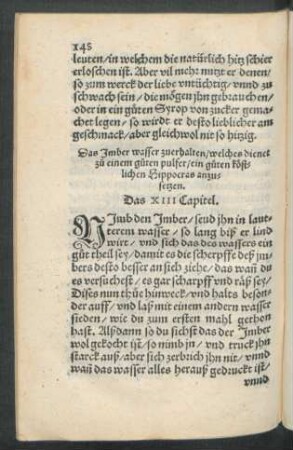 148
leuten/ in welchem die natürlich hitz schier
erloschen ist. Aber vil mehr nutzt er denen/
so zum werck der liebe vntüchtig/ vnnd zu
schwach sein/ die mögen jhn gebrauchen/
oder in ein gůten Syrop von zucker gema-
chet legen/ so würdt er desto lieblicher am
geschmack/ aber gleichwol nit so hitzig.
Das Jmber wasser zuerhalten/ welches dienet
zů einem gůten pulfer/ ein gůten köst-
lichen Hippocras anzu-
setzen.
Das XIII Capitel.
Nimb den Jmber/ seud jhn in laut-
terem wasser/ so lang biß er lind
wirt/ vnd sich das des wassers ein
gůt theil sey/ damit es die scherpffe deß jm-
bers desto besser an sich ziehe/ das wañ du
es versuchest/ es gar scharpff vnd räß sey/
Dises nun thůe hinweck/ vnd halts beson-
der auff/ vnd laß mit einem andern wasser
sieden/ wie du zum ersten mahl gethon
hast. Alßdann so du sichst das der Jmber
wol gekocht ist/ so nimb jn/ vnd truck jhn
starck auß/ aber sich zerbrich jhn nit/ vnnd
wañ das wasser alles herauß gedruckt ist/
vnnd